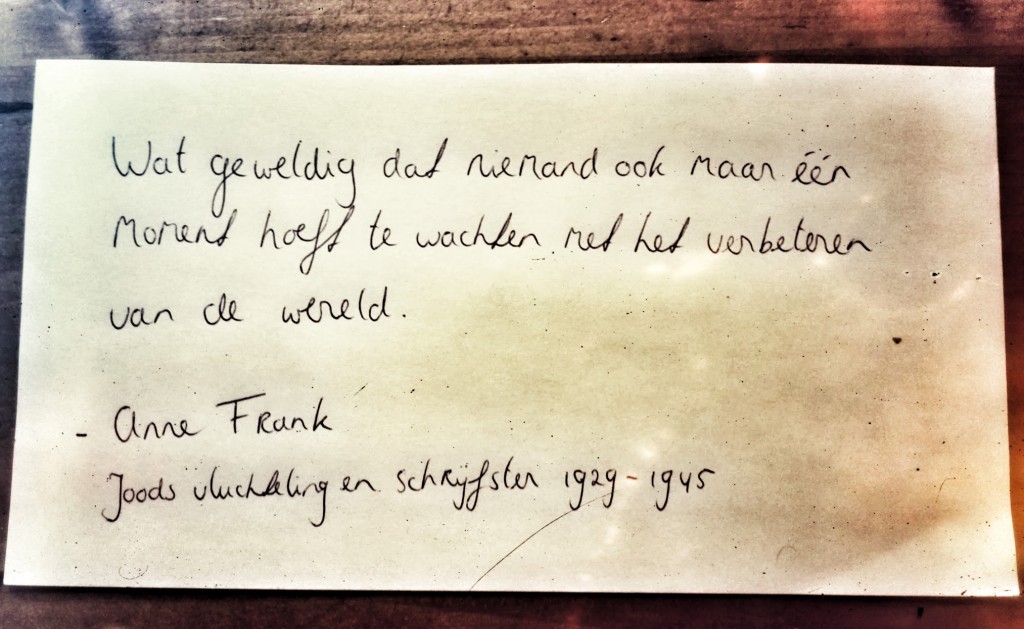 Wat geweldig dat niemand ook maar één
moment hoeft te wachten met het verbeteren
van de wereld.
- Anne Frank
Joods vluchteling en schrijfster 1929-1945